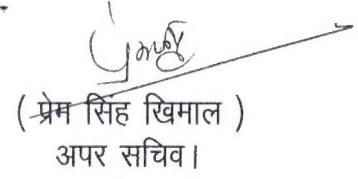 ( प्रेम सिंह खिमाल )
अपर सचिव।